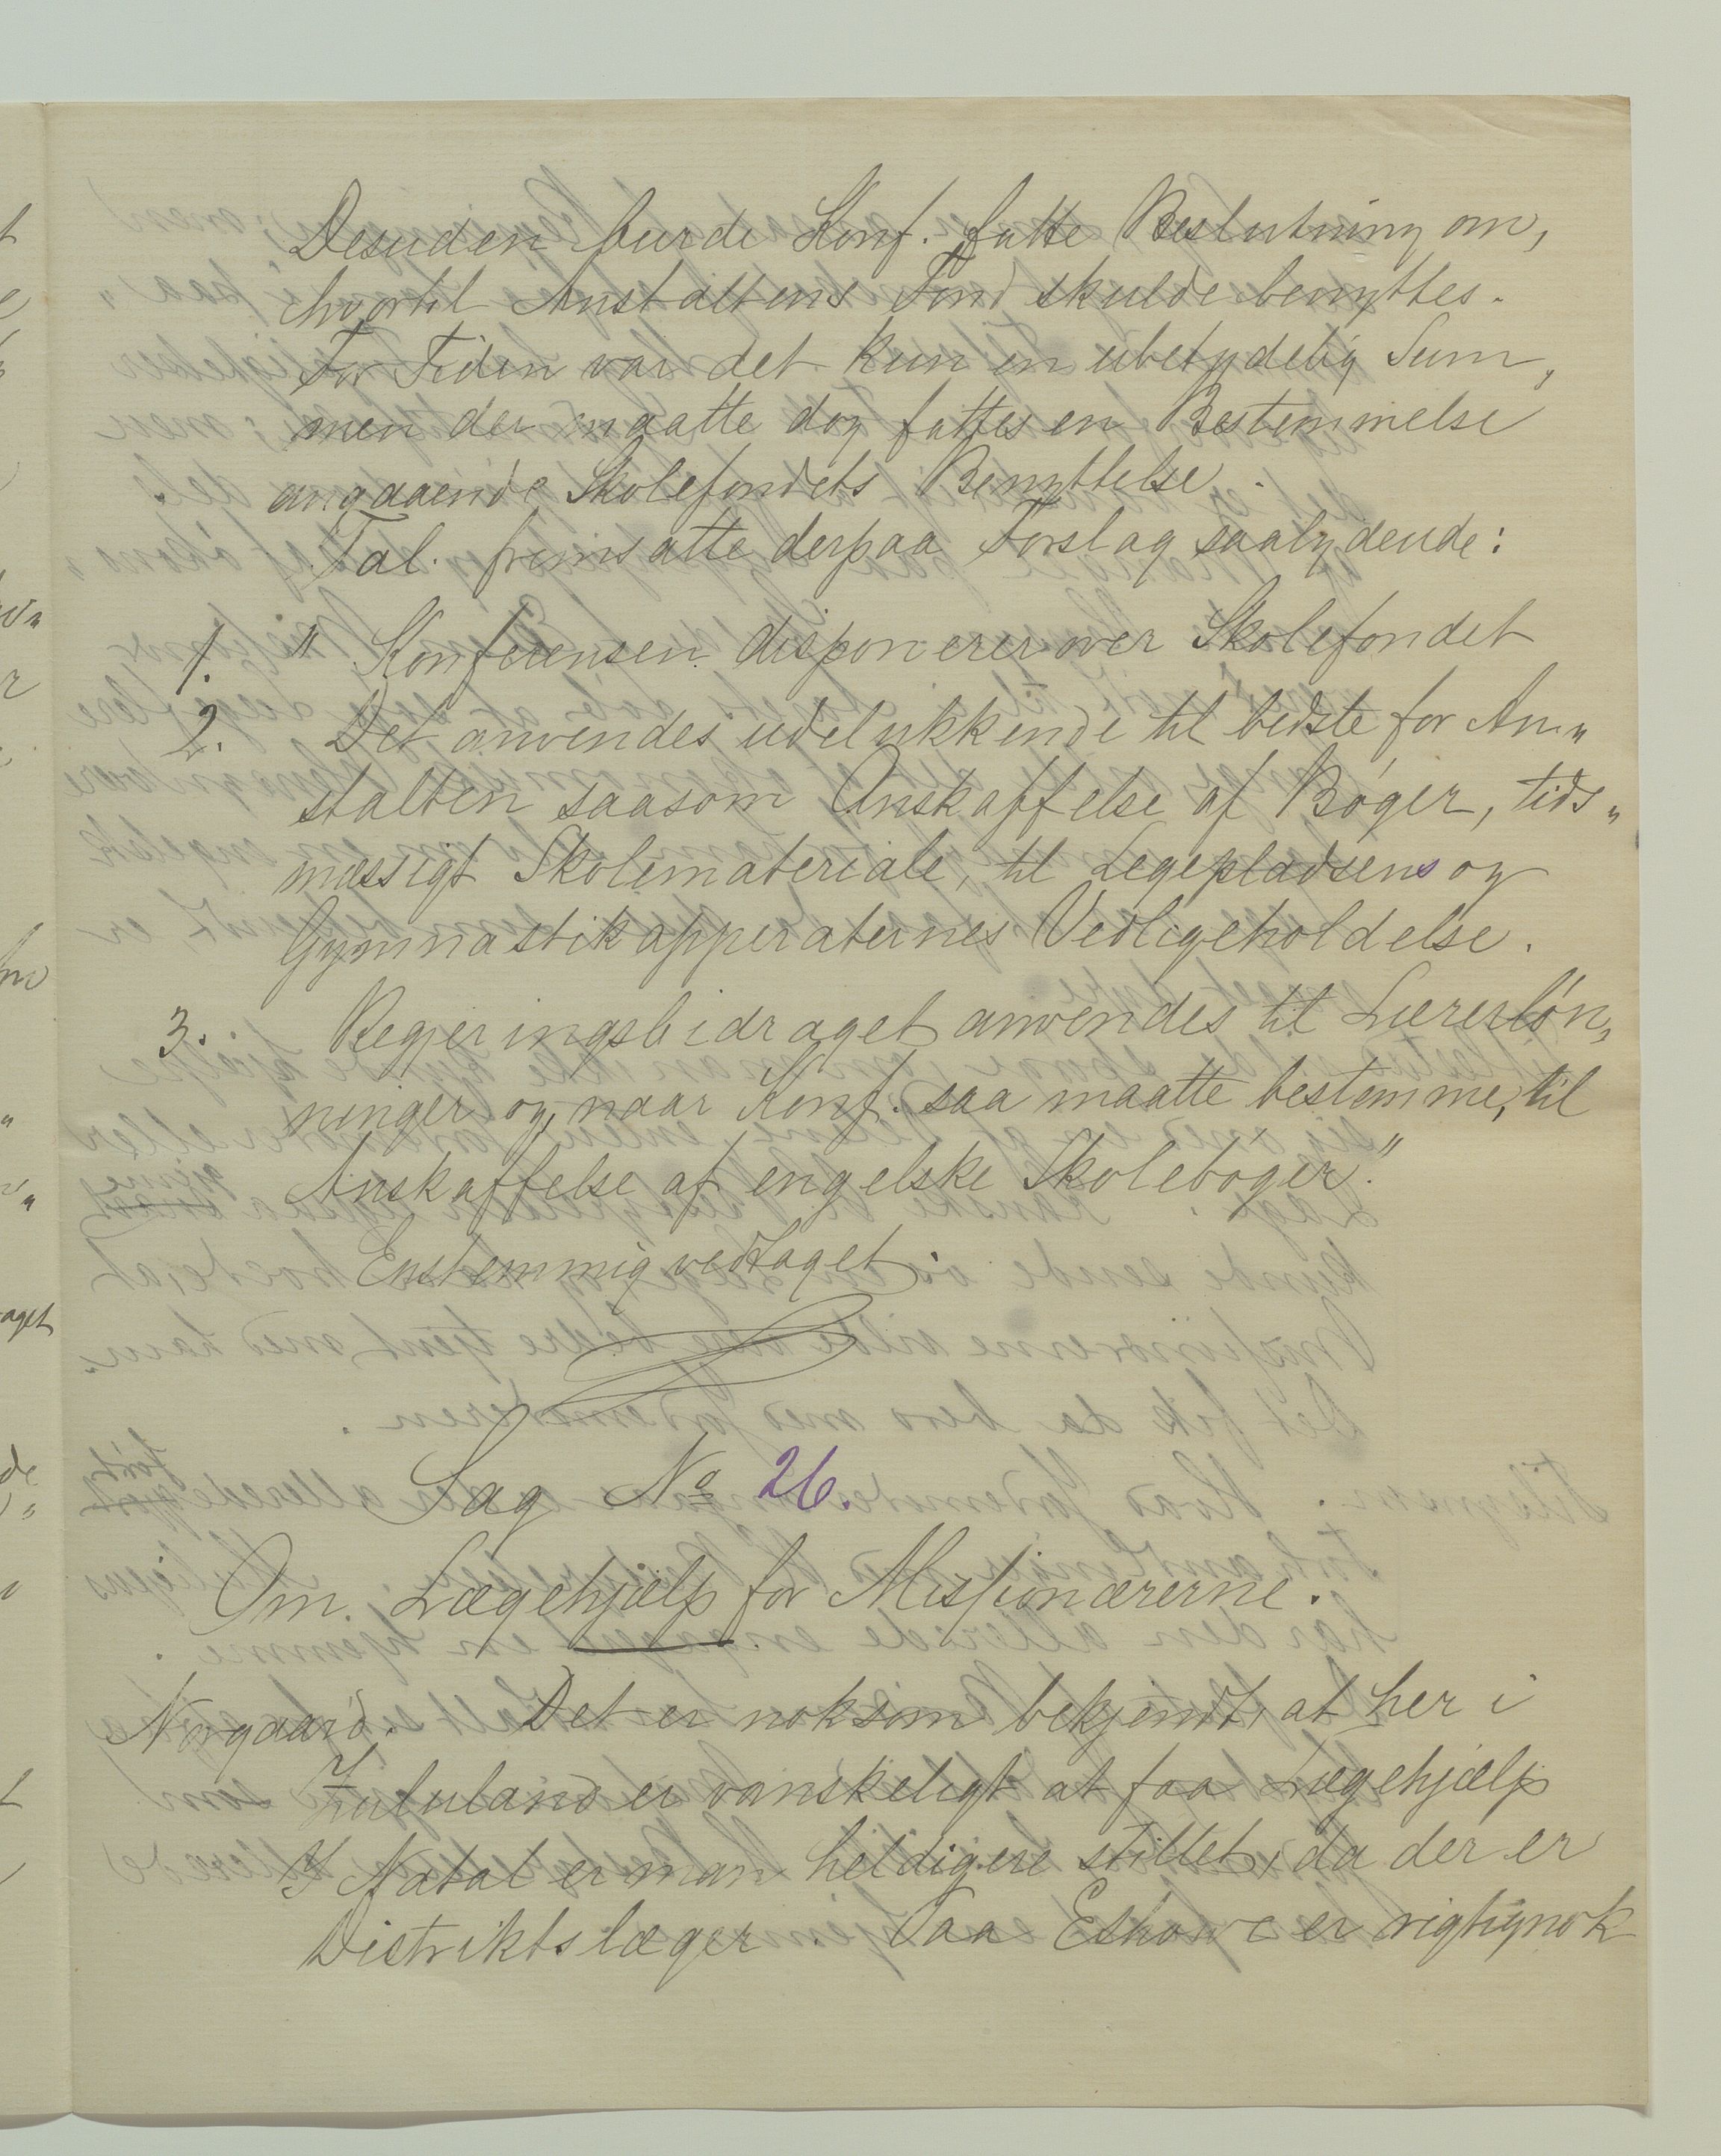 Desuden burde Konf. fatte Beslutning om,
hvortil Anstaltens Fond skulde benyttes.
For Tiden var det kun en ubetydelig Sum,
men der maatte dog fattes en Bestemmelse
angaaende Skolefondets Benyttelse.
Tal. fremsatte derpaa Forslag saalydende:
1. " Konferensen disponerer over Skolefondet
2. Det anvendes udelukkende til bedste for An„
stalten saasom Anskaffelse af Bøger, tids„
mæssigt Skolemateriale, til Legepladsens og
Gymnastikapperaternes Vedligeholdelse.
3. Regjeringsbidraget anvendes til Lærerløn„
ninger og, naar Konf. saa maatte bestemme, til
Anskaffelse af engelske Skolebøger."
Enstemmig vedtaget.
Sag No 26.
Om Lægehjælp for Missionærerne.
Norgaard. Det er noksom bekjendt, at her i
Zululand er vanskeligt at faa Lægehjælp
I Natal er man heldigere stillet, da der er
Distriktslæger. Paa Eshowe er rigtignok